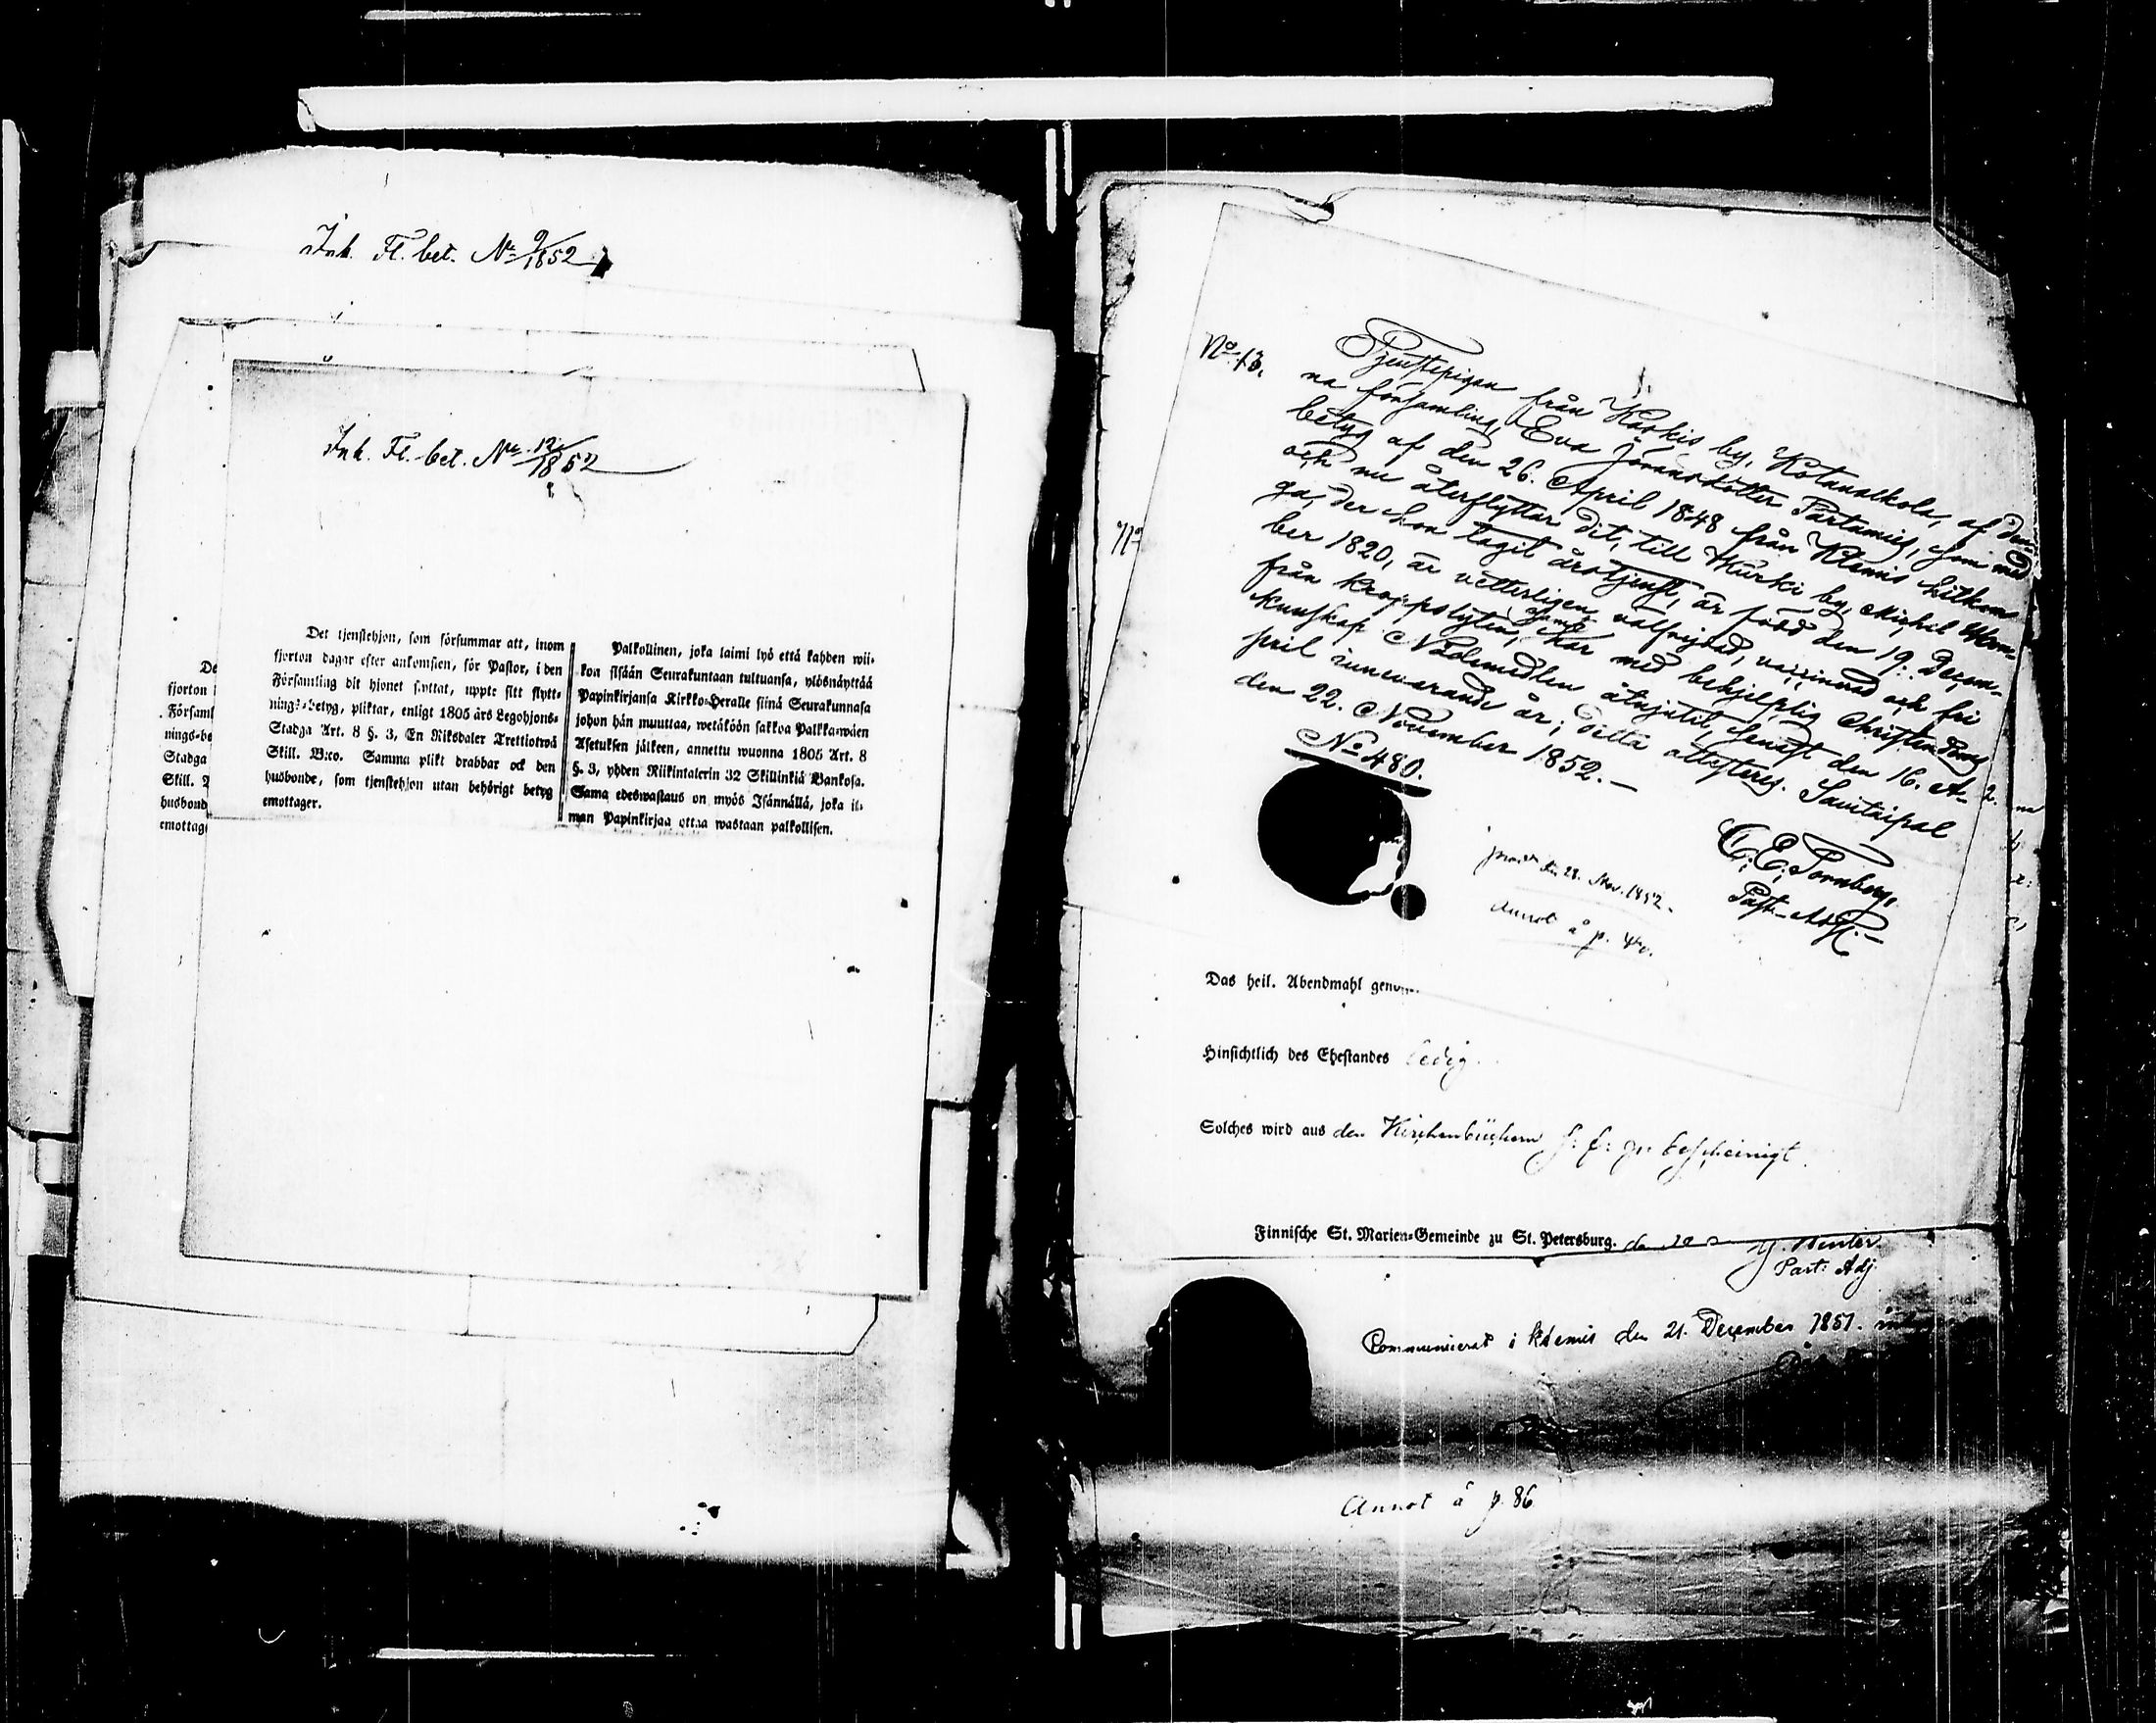 Ink. Fl. bet. No 9/1852
Ink. Fl. bet. No 12/1852
Det tjenstehjon, som försummar att, inom
fjorton dagar efter ankomsten, för Pastor, i den
Församling dit hjonet flyttat, uppte sitt flytt-
nings-betyg, pliktar, enligt 1805 års Legohjons-
Stadga Art. 8 §. 3, En Riksdaler Trettiotwå
Skill. B:co. Samma plikt drabbar ock den
husbonde, som tjenstehjon utan behörigt betyg
emottager.
Palkollinen, joka laimi lyö että kahden wii-
kon sisään Seurakuntaan tultuansa, ylösnäyttää
Papinkirjansa Kirkko-Heralle siinä Seurakunnasa
johon hän muuttaa, wetäköön sakkoa Palkka-wäen
Asetuksen jälkeen, annettu wuonna 1805 Art. 8
§. 3, yhden Riikintalerin 32 Skillinkiä Bankosa.
Sama edeswastaus on myös Isännällä, joka il-
man Papinkirjaa ottaa wastaan palkollisen.
De
fjorton
Församl
nings-be
Stadga
Skill.
husbond
emottag
No
No. 13.
Tjenstepigan från Kaskis by, Kotanalkola, af den-
na församling, Eva Jöransdotter Partamies, som med
betyg af den 26. April 1848 från Klemis hitkom
och nu återflyttar dit, till Kurki by, Michel
ga, der hon tagit årstjenst, är född den 19. Decem-
ber 1820, är vetterligen välfrejdad, vaccinerad och fri
från kroppslyten, samt har med behjelplig Christendoms
kunskap Nådemedlen åtnjutit, senast den 16. A-
pril innevarande år; detta attesteres. Savitaipal
den 22. November 1852.—
No 480.
C. E. Tornberg,
Past. Adj.—
den 28. Nov. 1852.
Annot å p. 40.
Das heil. Abendmahl
Hinsichtlich des Ehestandes ledig.
Solches wird aus den Kirchenbüchern h: bescheinigt.
Finnische St. Marien-Gemeinde zu St. Petersburg.
Past: Adj.
Communicerat i Klemis den 21. December 1851.
Annot å p. 86